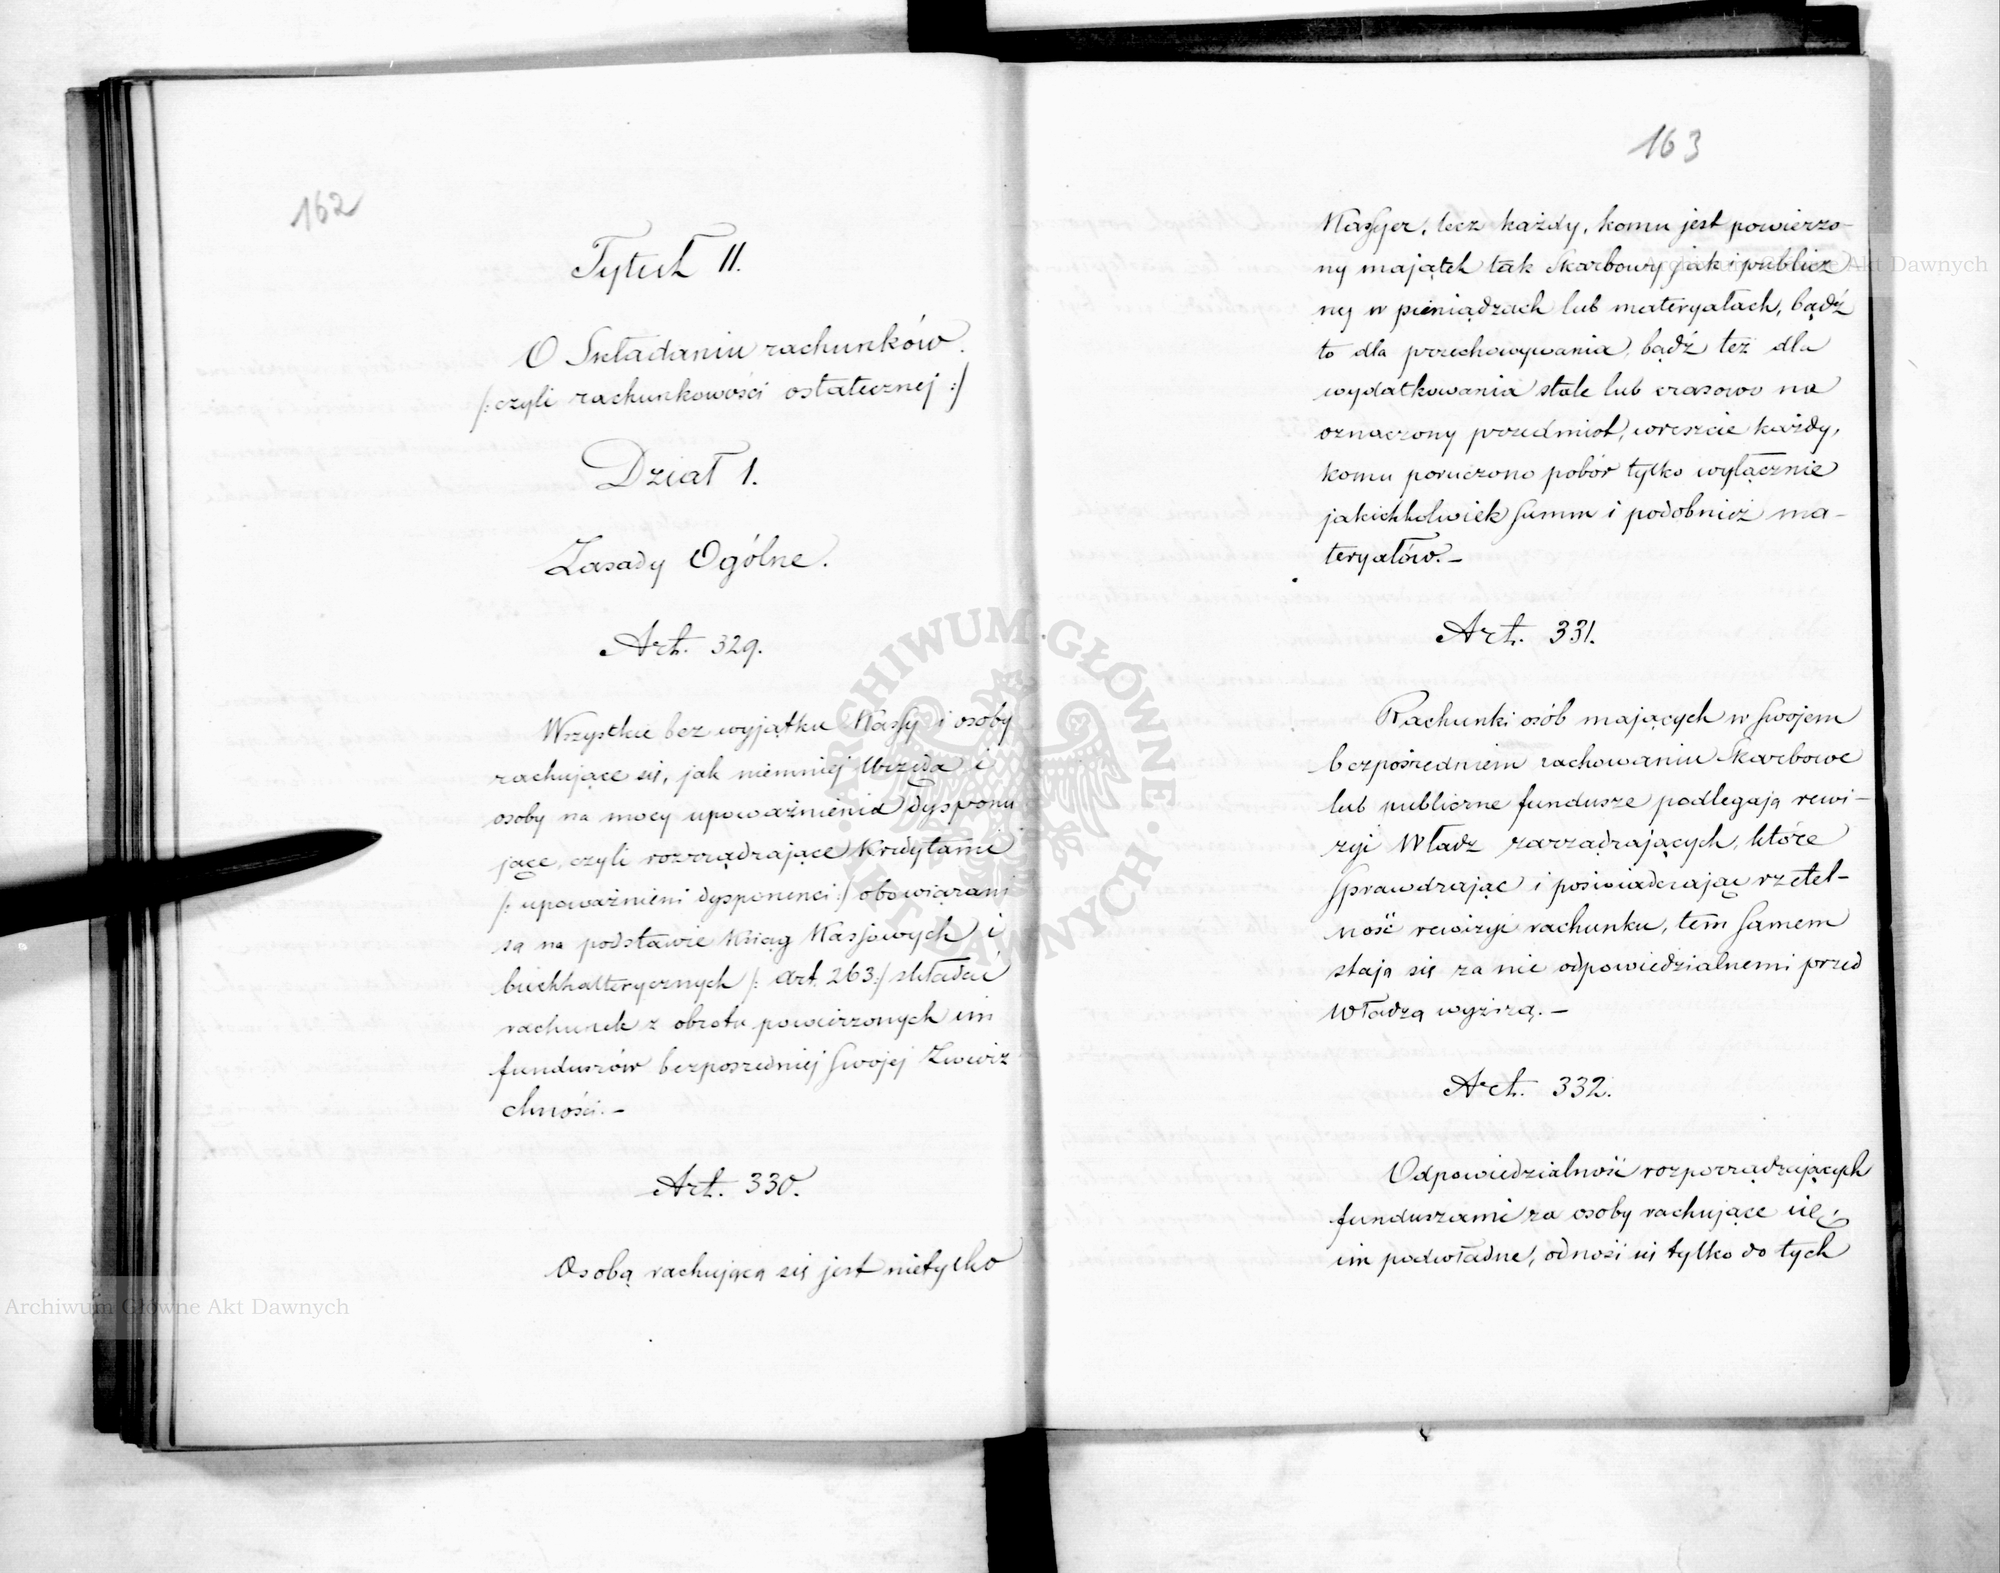 162
Tytuł II.
O Składaniu rachunków.
/: czyli rachunkowości ostatecznej :/
Dział 1.
Zasady Ogólne.
Art. 329.
Wszystkie bez wyjątku Kassy i osoby
rachujące się, jak niemniej Urzęda i
osoby na mocy upoważnienia dysponu
jące, czyli rozrządzające Kredytami
/: upoważnieni dysponenci :/ obowiązani
są na podstawie Ksiąg Kassowych i
buchhalterycznych /: Art. 263 :/ składać
rachunek z obrotu powierzonych im
funduszów bezpośredniej swojej Zwierz
chności. –
Art. 330.
Osobą rachującą się jest nietylko
163
Kassyer, lecz każdy, komu jest powierzo-
ny majątek tak Skarbowy jak i publicz
ny w pieniądzach lub materyałach, bądź
to dla przechowywania, bądź też dla
wydatkowania stale lub czasowo na
oznaczony przedmiot, wreszcie każdy,
komu poruczono pobór tylko wyłącznie
jakichkolwiek summ i podobnież ma-
teryałów. –
Art. 331.
Rachunki osób mających w swojem
bezpośredniem zachowaniu Skarbowe
lub publiczne fundusze podlegają rewi-
zyi Władz zarządzających, które
sprawdzając i poświadczając rzetel-
ność rewizyi rachunku, tem samem
stają się za nie odpowiedzialnemi przed
Władzą wyższą. –
Art. 332.
Odpowiedzialność rozporządzających
funduszami za osoby rachujące się,
im podwładne, odnosi się tylko do tych
Archiwum Główne Akt Dawnych
Archiwum Główne Akt Dawnych
ARCHIWUM GŁÓWNE AKT DAWNYCH